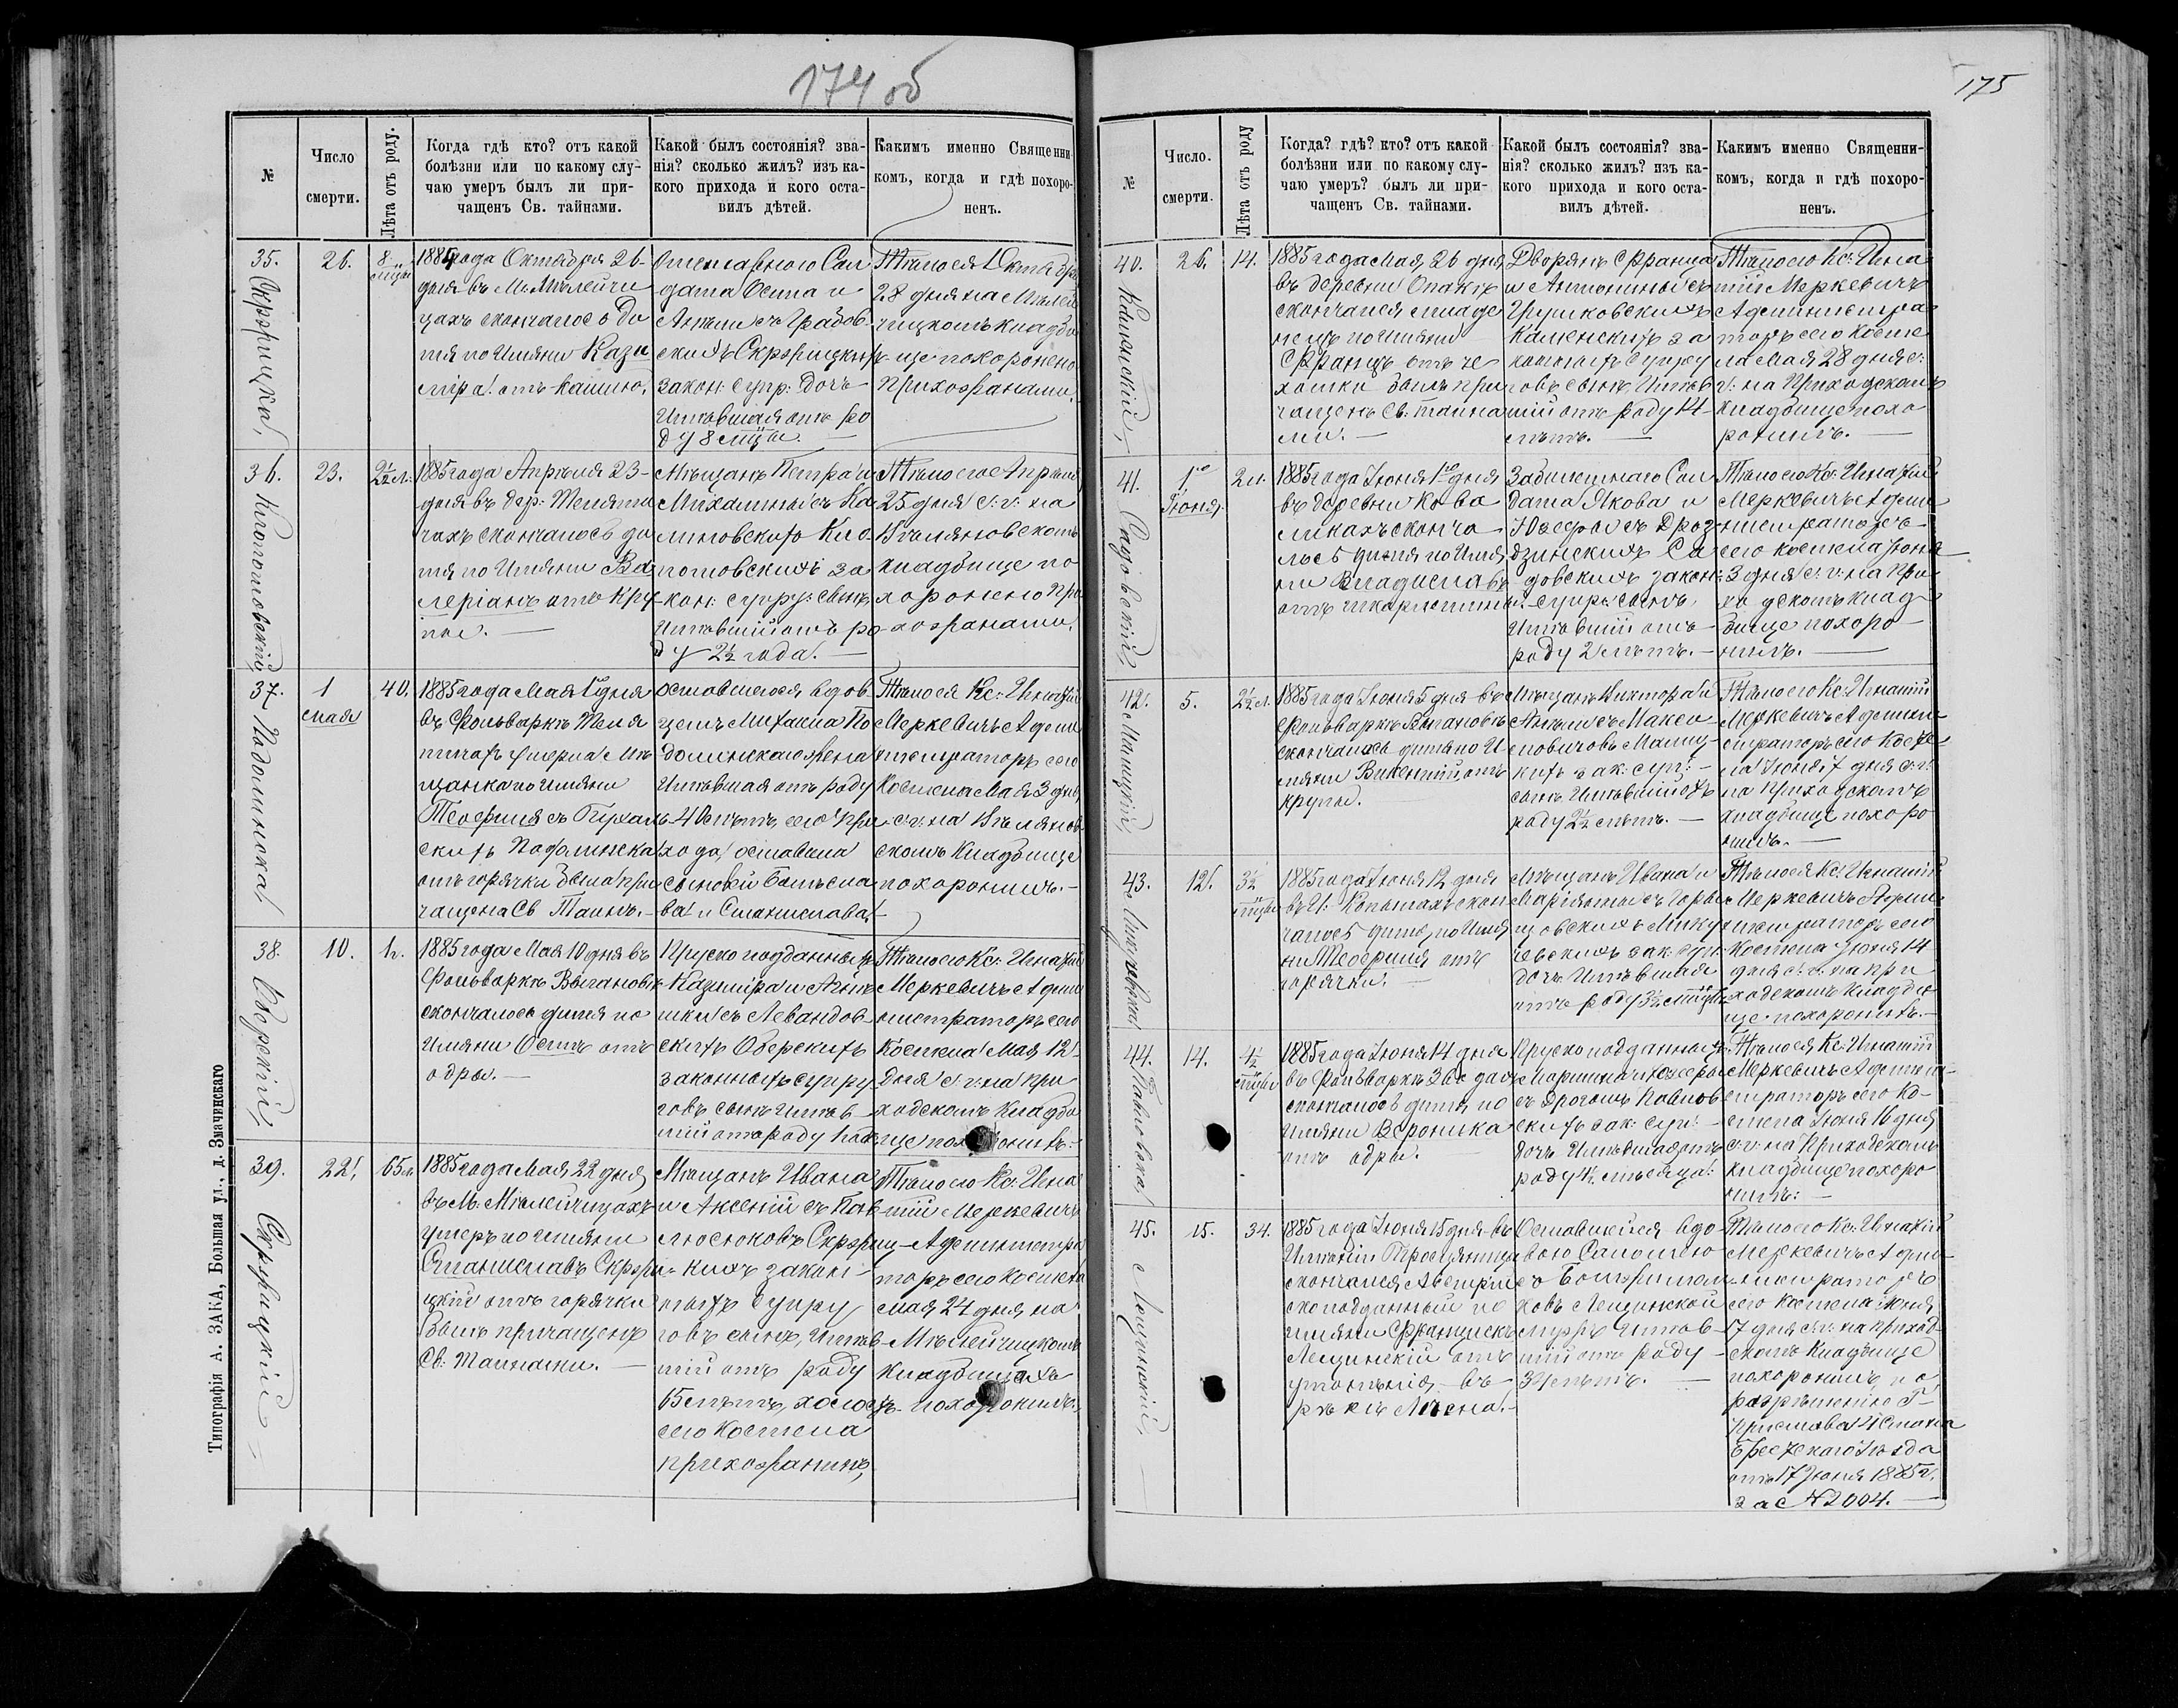 174 об
№
Число
смерти.
Лѣта отъ роду.
Когда гдѣ кто? отъ какой
болѣзни или по какому слу-
чаю умеръ былъ ли при-
чащенъ Св. тайнами.
Какой былъ состоянія? зва-
нія? сколько жилъ? изъ ка-
кого прихода и кого оста-
вилъ дѣтей.
Какимъ именно Священни-
комъ, когда и гдѣ похоро-
ненъ.
35.
26.
8
1884 года Октября 26-
дня въ М. Мѣлейчи
цахъ скончалось ди
тя по Имяни Кази
міра отъ кашлю.
Отставного Сол
дата Осипа и
закон: супр: дочь
Имѣвшая отъ ро
ду 8 мцы. —
Тѣло ея Октября
28 дня на Мѣлей
чицкомъ кладби
ще похоронено
прихожанами.
36.
23.
2½ л.
1885 года Апрѣля 23-
дня въ дер:
чахъ скончалось ди
тя по Имяни Ва
леріанъ отъ кру
пы. —
Мѣщанъ Петра и
Михалины съ Ка
линовскихъ Кло
потовскихъ за
кон: супру: сынъ
Имѣвшій отъ ро
ду 2½ года. —
Тѣло его Апрѣля
25 дня с. г. на
кладбище по
хоронено при
хожанами.
37.
Подолинская
1
мая
40.
1885 года Мая 1 дня
въ Фольваркѣ
умерла Мѣ
щанка по Имяни
Теофиля съ
отъ горячки была при
чащена Св. Таинъ. —
оставшегося вдов
цемъ Михаила По
долинскаго жена
Имѣвшая отъ роду
40 лѣтъ, сего при
хода, оставила
сыновей Болесла
ва и Станислава
Тѣло ея Кс. Игнатій
Меркевичъ Адми
нистраторъ сего
Костела Мая 3 дня
с. г. на
скомъ Кладбище
похоронилъ. —
38.
Оберскій
10.
1885 года Мая 10 дня въ
Фольваркѣ Выгановѣ
скончалось дитя по
Имяни Осипъ отъ
одры. —
Прускоподданныхъ
Казиміра и
съ Левандов
скихъ Оберскихъ
законныхъ супру
говъ сынъ Имѣв
шій отъ роду
Тѣло его Кс. Игнатій
Меркевичъ Адми
нистраторъ сего
Костела Мая 12
дня с. г. на при
ходскомъ Кладби
39.
22.
65 л.
1885 года Мая 22 дня
въ М: Мѣлейчицахъ
умеръ по имяни
Станиславъ
отъ горячки
былъ причащенъ
Св: Тайнами. —
Мѣщанъ Ивана
и Аксеніи съ
закон-
ныхъ супру
говъ сынъ, Имѣв
шій отъ роду
65 лѣтъ, холостъ
сего Костела
прихожанинъ,
Тѣло его Кс. Игна
тій Меркевичъ
Администра
торъ сего Костела
мая 24 дня на
Мѣлейчицкомъ
Кладбищахъ
похоронилъ.
Типографія А. ЗАКА, Большая ул., д. Значинскаго
175
№
Число.
смерти.
Лѣта отъ роду
Когда? гдѣ? кто? отъ какой
болѣзни или по какому слу-
чаю умеръ? былъ ли при-
чащенъ Св. тайнами.
Какой былъ состоянія? зва-
нія? сколько жилъ? изъ ка-
кого прихода и кого оста-
вилъ дѣтей.
Какимъ именно Священни-
комъ, когда и гдѣ похоро-
ненъ.
40.
26.
14.
1885 года Мая 26 дня
въ деревни
скончался младе
нецъ по имяни
Францъ отъ че
хотки былъ при
чащенъ Св: Тайна
ми. —
Дворянъ Франца
и Антонины съ
за
конныхъ супру
говъ сынъ Имѣв
шій отъ роду 14
лѣтъ. —
Тѣло его Кс: Игна
тій Меркевичъ
Администра
торъ сего Косте
ла Мая 28 дня с.
г: на Приходскомъ
кладбище похо
ронилъ. —
41.
Садовскій
1го
Іюня
2 л.
1885 года Іюня 1го дня
въ деревни Кова
ликахъ сконча
лось дитя по Имя
ни Владиславъ
отъ шкарлатины
Забилетнаго Сол
дата Якова и
Юзефы съ Дроз
дзинскихъ Са
довскихъ закон:
супр: сынъ,
Имѣвшій отъ
роду 2 лѣтъ. —
Тѣло его Кс. Игнатій
Меркевичъ Адми
нистраторъ
сего Костела Іюня
3 дня с. г. на При
ходскомъ клад
бище похоро
нилъ. —
42.
5.
2½ л.
1885 года Іюня 5 дня въ
Фольваркѣ Выгановѣ
скончалось дитя по И
мяни Викентій отъ
крупы.
Мѣщанъ Виктора и
съ Макси
мовичовъ
зак: супр: —
сынъ Имѣвшій отъ
роду 2½ лѣтъ. —
Тѣло его Кс. Игнатій
Меркевичъ Админи
страторъ сего Косте
ла Іюня 7 дня с. г.
на приходскомъ
кладбище похоро
нилъ. —
43.
12.
3½
1885 года Іюня 12 дня
скон
чалось дитя, по Имя
ни Теофиля отъ
горячки. —
Мѣщанъ Ивана и
Маріянны съ
зак: супр:
дочь Имѣвшая
отъ роду 3½
Тѣло ея Кс. Игнатій
Меркевичъ Адми
нистраторъ сего
Костела Іюня 14
дня с. г. на при
ходскомъ кладби
ще похоронилъ. —
44.
Павловская
14.
4½
1885 года Іюня 14 дня
въ Фольваркѣ
скончалось дитя по
Имяни Вероника
отъ одры. —
Прускоподданныхъ
Мартина и Юзефы
съ Павлов
скихъ зак: супр: —
дочь Имѣвшая отъ
роду 4½ мѣсяца:
Тѣло ея Кс. Игнатій
Меркевичъ Админи
страторъ сего Ко-
стела Іюня 16 дня
с. г. на Приходскомъ
кладбище похоро
нилъ: —
45.
Лещинскій
15.
34.
1885 года Іюня 15 дня въ
Имѣніи
скончался Австрій
скоподданный по
имяни Францискъ
Лещинскій отъ
утопленія въ
рѣкѣ Лѣсна. —
Оставшейся вдо
вою Саломею
Лещинской
мужъ Имѣв
шій отъ роду
34 лѣтъ. —
Тѣло его Кс. Игнатій
Меркевичъ Адми
нистраторъ
сего Костела Іюня
17 дня с. г. на приход
скомъ Кладбище
похоронилъ по
разрѣшенію Г-
Пристава 4 Стана
Брестскаго Уѣзда
отъ 17 Іюня 1885 г.
за № 2004. —